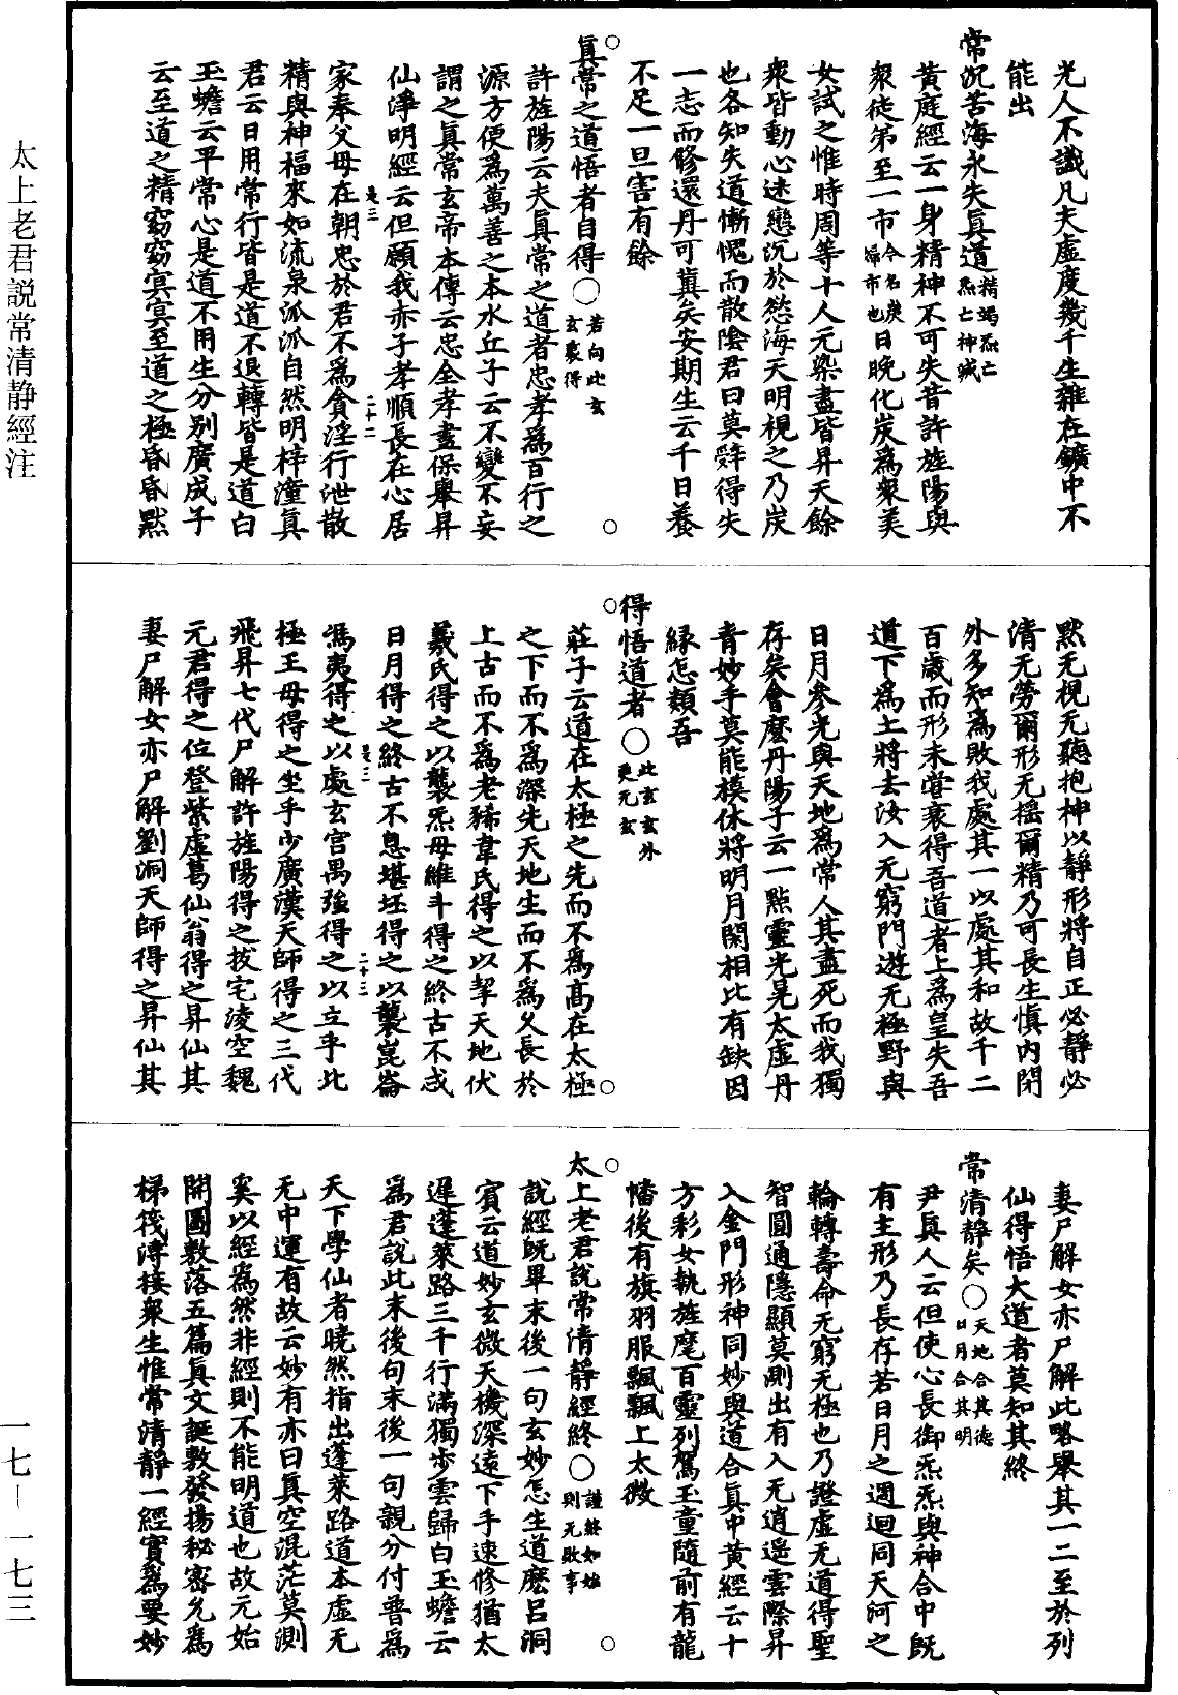 太上老君說常清靜經注
一七—一七三
光人不識凡夫虛度幾千生雜在鑛中不
能出
常沉苦海永失真道精竭炁亡炁亡神滅
黃庭經云一身精神不可失昔許旌陽與
衆徒弟至一市今名炭婦市也日晚化炭爲衆美
女試之惟時周等十人元染盡皆昇天餘
衆皆動心迷戀沉於慾海天明視之乃炭
也各知失道慚愧而散陰君曰莫辤得失
一志而修還丹可冀矣安期生云千日養
不足一旦害有餘
真常之道悟者自得○若向此玄玄裏得
許旌陽云夫真常之道者忠孝爲百行之
源方便爲萬善之本水丘子云不變不妄
謂之真常玄帝本傳云忠全孝盡保舉昇
仙淨明經云但願我赤子孝順長在心居
是三 二十二
家奉父母在朝忠於君不爲貪淫行泄散
精與神福來如流泉派派自然明梓潼真
君云日用常行皆是道不退轉皆是道白
玉蟾云平常心是道不用生分別廣成子
云至道之精窈窈冥冥至道之極昏昏默
默无視无聽抱神以靜形將自正必靜必
清无勞爾形无搖爾精乃可長生慎內閉
外多知為敗我處其一以處其和故千二
百歲而形未嘗衰得吾道者上爲皇失吾
道下爲土將去汝入无窮門遊无極野與
日月參光與天地爲常人其盡死而我獨
存矣會麼丹陽子云一點靈光晃太虛丹
青妙手莫能模休將明月閑相比有缺因
緣怎類吾
得悟道者○此玄玄外更无玄
莊子云道在太極之先而不爲高在太極
之下而不爲深先天地生而不爲久長於
上古而不爲老狶韋氏得之以挈天地伏
羲氏得之以襲炁母維斗得之終古不忒
日月得之終古不息堪坯得之以襲崑崙
是三 二十三
馮夷得之以處玄宮禺強得之以立乎北
極王母得之坐乎少廣漢天師得之三代
飛昇七代尸解許旌陽得之拔宅淩空魏
元君得之位登紫虛葛仙翁得之昇仙其
妻尸解女亦尸解劉洞天師得之昇仙其
妻尸解女亦尸解此略舉其一二至於列
仙得悟大道者莫知其終
常清靜矣○天地合其德日月合其明
尹真人云但使心長御炁炁與神合中既
有主形乃長存若日月之週迴同天河之
輪轉壽命无窮无極也乃證虛无道得聖
智圓通隱顯莫測出有入无逍遥雲際昇
入金門形神同妙與道合真中黃經云十
方彩女執旌麾百靈列駕玉童隨前有龍
幡後有旗羽服飄飄上太微
太上老君說常清靜經終○謹終如始則无敗事
說經既畢末後一句玄妙怎生道麽呂洞
賓云道妙玄微天機深遠下手速修猶太
遲蓬萊路三千行滿獨步雲歸白玉蟾云
爲君說此末後句末後一句親分付普爲
天下學仙者曉然指出蓬萊路道本虛无
无中運有故云妙有亦曰真空混茫莫測
奚以經爲然非經則不能明道也故元始
開圖敷落五篇真文誕敷發揚秘密允爲
梯筏溥接衆生惟常清靜一經實爲要妙